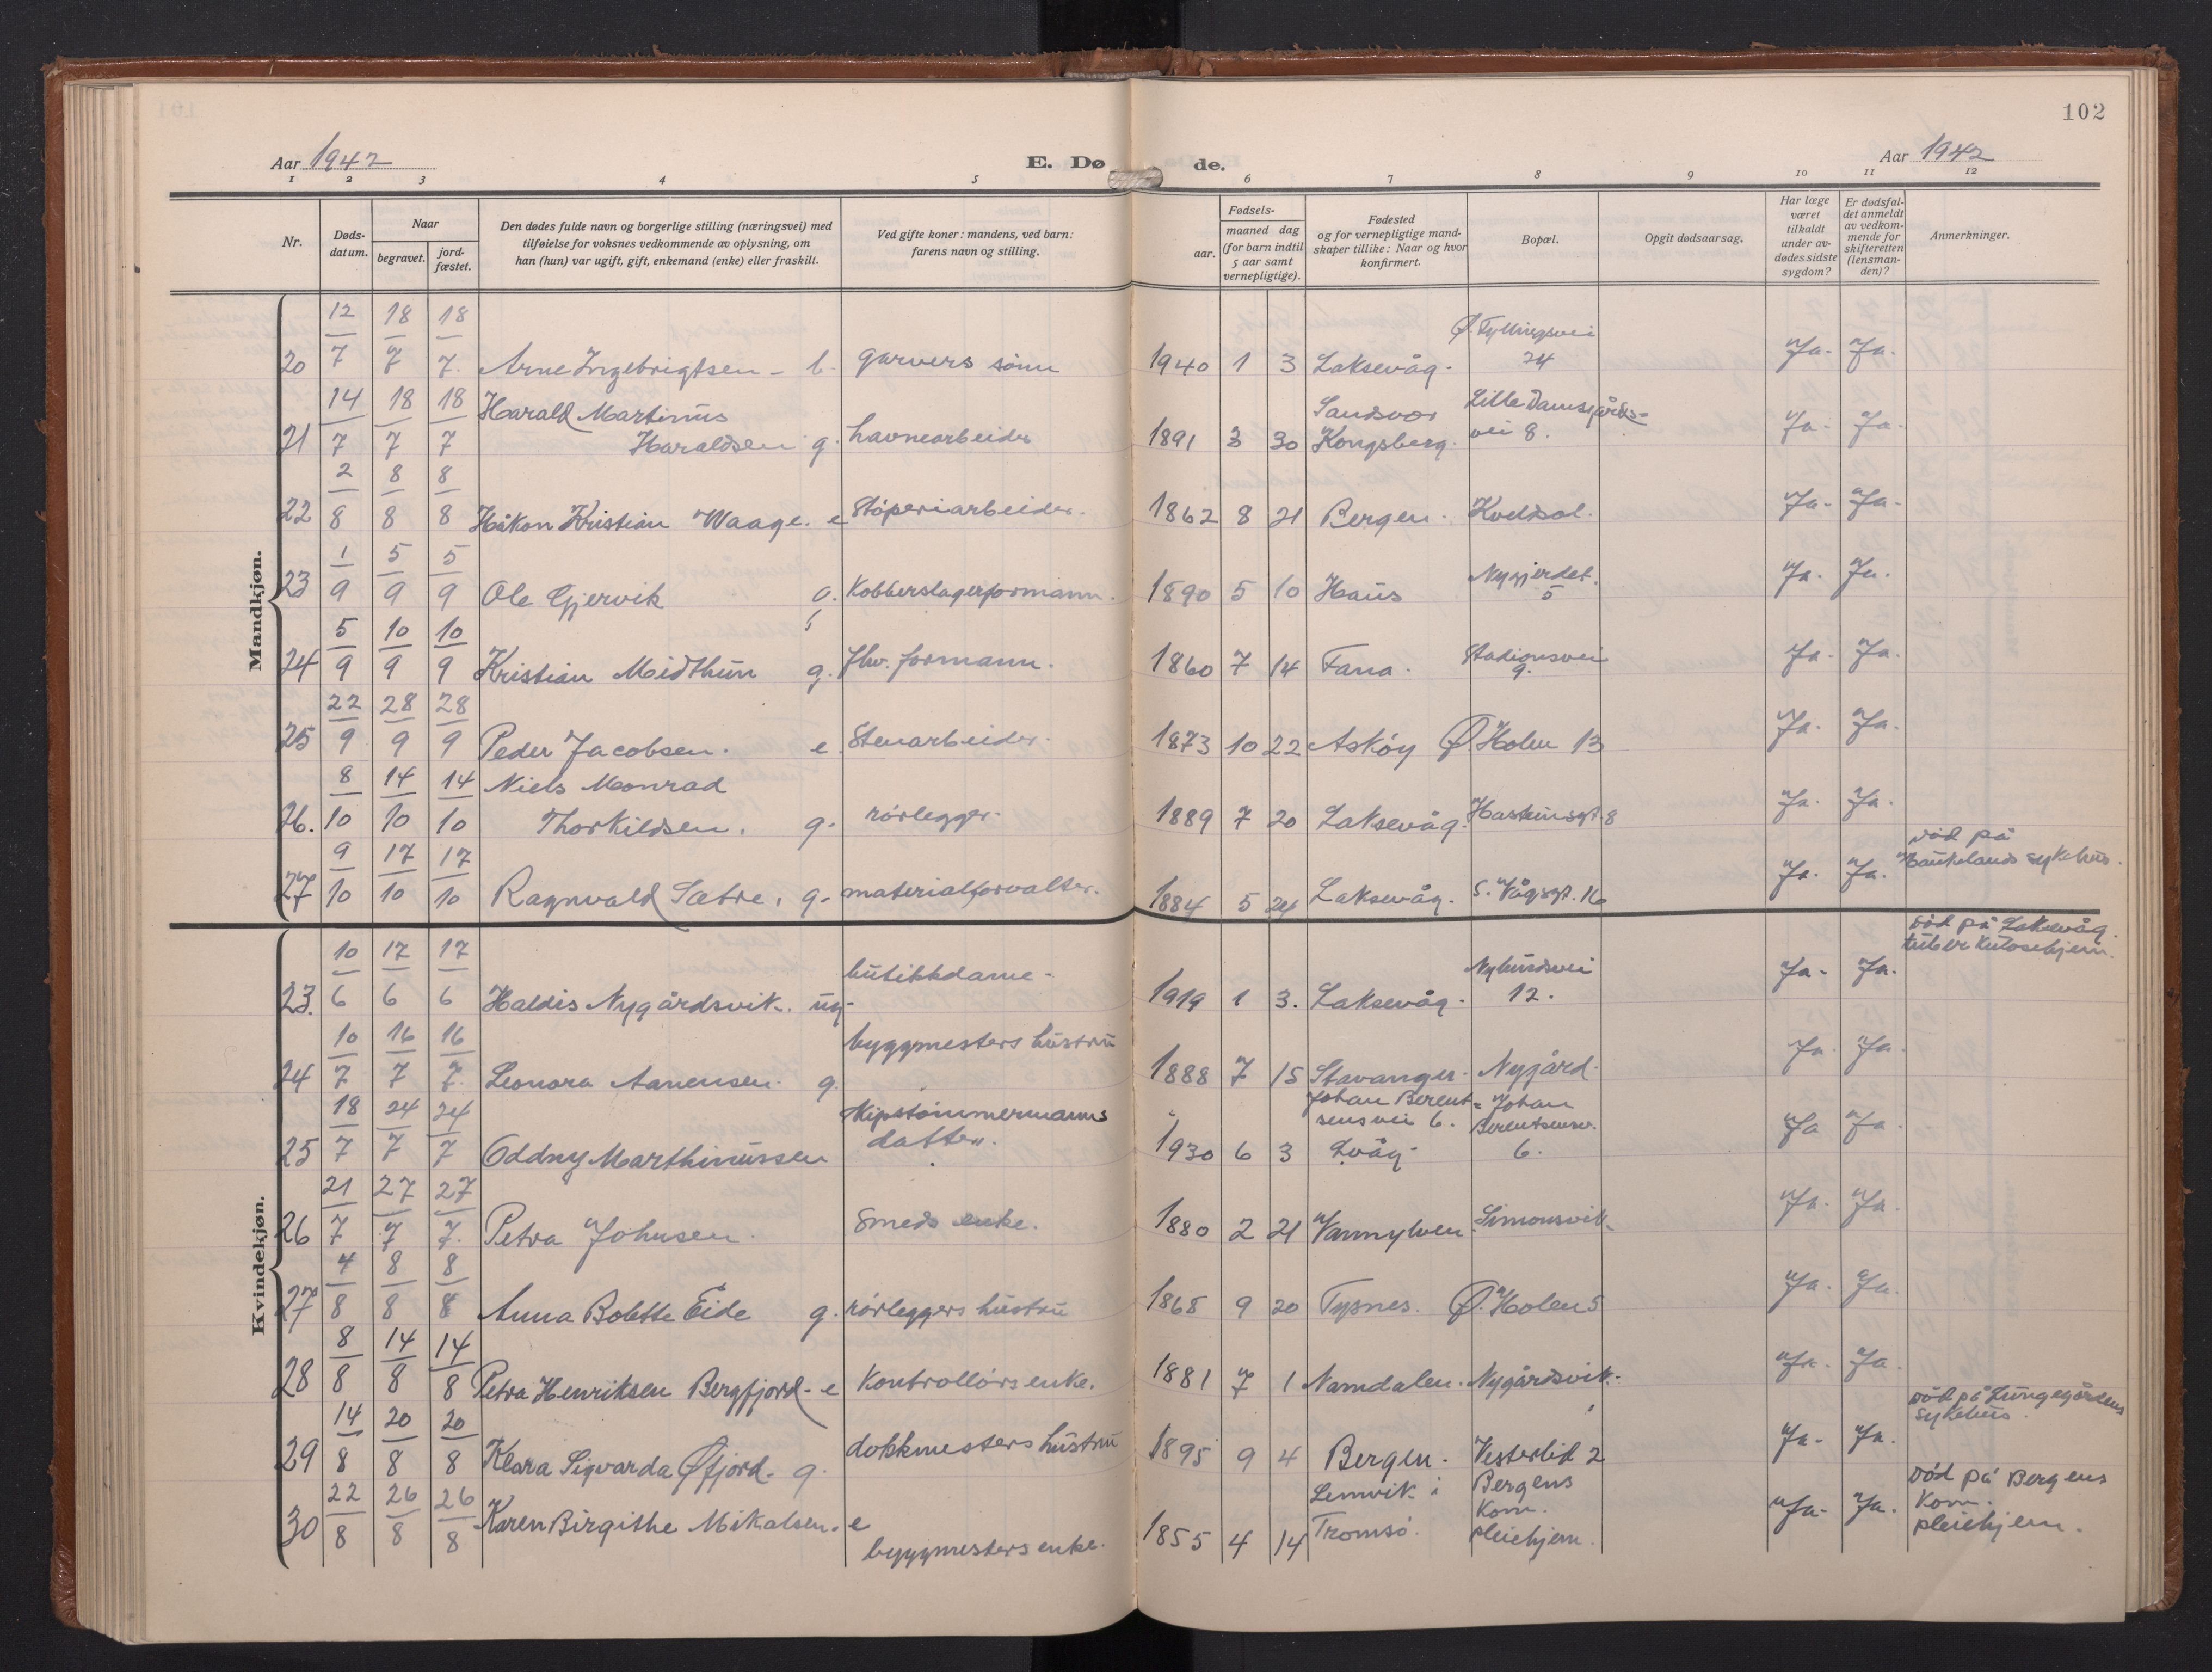 102
Aar 1942 E. Dø de. Aar 1942
1 2 3 4 5 6 7 8 9 10 11 12
Nr.
Døds-datum.
Naar
begravet.
jord-fæstet.
Den dødes fulde navn og borgerlige stilling (næringsvei) med
tilføielse for voksnes vedkommende av oplysning, om
han (hun) var ugift, gift, enkemand (enke) eller fraskilt.
Ved gifte koner: mandens, ved barn:
farens navn og stilling.
Fødsels-
aar.
maaned dag
(for barn indtil
5 aar samt
vernepligtige).
Fødested
og for vernepligtige mand-
skaper tillike: Naar og hvor
konfirmert.
Bopæl.
Opgit dødsaarsag.
Har læge
været
tilkaldt
under av-
dødes sidste
sygdom?
Er dødsfal-
det anmeldt
av vedkom-
mende for
skifteretten
(lensman-
den)?
Anmerkninger.
Mandkjøn.
12 18 18 Ø. Fyllingsvei
20 7 7 7. Arne Ingebrigtsen - b. garvers sønn 1940 1 3 Laksevåg. 24 Ja. Ja.
14 18 18 Harald Martinus Sandsvær Lille Damsgårds-
21 7 7 7 Haraldsen g. havnearbeider 1891 3 30 Kongsberg. vei 8. Ja. Ja.
2 8 8
22 8 8 8 Håkon Kristian Waage. e Støperiarbeider. 1862 8 21 Bergen. Kveldsol. Ja. Ja.
1 5 5 Nygjerdet.
23 9 9 9 Ole Gjervik g. Kobberslagerformann. 1890 5 10 Haus 5 Ja. Ja.
5 10 10 Stadionsvei
24 9 9 9 Kristian Midthun g. fhv. formann. 1860 7 14 Fana. 9. Ja. Ja.
22 28 28
25 9 9 9 Peder Jacobsen. e. Stenarbeider. 1873 10 22 Askøy Ø Holen 13 Ja. Ja.
8 14 14 Niels Monrad
26. 10 10 10 Thorkildsen. g. rørlegger. 1889 7 20 Laksevåg. Hasteinsgt. 8 Ja. Ja.
9 17 17 død på
Haukelands sykehus.
27 10 10 10 Ragnvald Sætre. g. materialforvalter. 1884 5 24 Laksevåg. S. Vågsgt. 16 Ja. Ja.
Kvindekjøn.
10 17 17 butikkdame - død på Laksevåg
tuberkulosehjem.
23. 6 6 6 Haldis Nygårdsvik. ug. 1919 1 3. Laksevåg. 12. Ja. Ja.
10 16 16 byggmesters hustru
24 7 7 7. Leonora Aanensen. g. 1888 7 15 Stavanger. Nygård. Ja. Ja.
18 24 24 skipstømmermanns Johan Berent- Johan
datter. sensvei 6. Berentsensv.
25 7 7 7 Oddny Marthinussen 1930 6 3 Lvåg. 6. Ja Ja.
21 27 27
26 7 7 7. Petra Johnsen. Smeds enke. 1880 2 21 Vannylven Simonsvik. Ja. Ja.
4 8 8
27 8 8 8 Anna Bolette Eide g. rørleggers hustru 1868 9 20 Tysnes. Ø. Holen 5 Ja. Ja.
8 14 14
28 8 8 8 Petra Henriksen Bergfjord - e Kontrollørs enke. 1881 7 1 Namdalen. Nygårdsvik. Ja. Ja.
14 20 20 død på Lungegårdens
sykehus.
29 8 8 8 Klara Sigvarda Øfjord. g. dokkmesters hustru 1895 9 4 Bergen. Vesterlid 2 Ja. Ja.
22 26 26 Lenvik i Bergens død på Bergens
30 8 8 8 Karen Birgithe Mikalsen. e byggmesters enke. 1855 4 14 Tromsø. Kom. pleiehjem. Ja. Ja. Kom. pleiehjem.